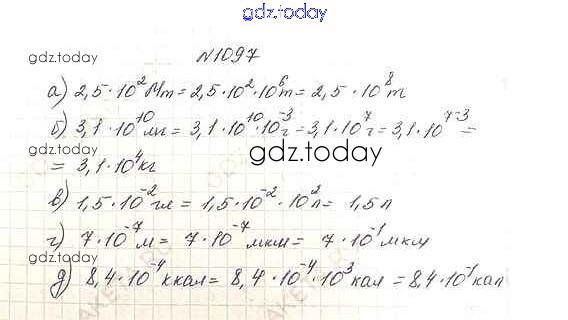 gdz.today
№1097
gdz.today
а) 2,5·10² Мт = 2,5·10²·10⁶т = 2,5·10⁸т
б) 3,1·10¹⁰ мг = 3,1·10¹⁰·10⁻³г = 3,1·10⁷г = 3,1·10⁷⁻³ =
gdz.today
gdz.today
= 3,1·10⁴кг
в) 1,5·10⁻² гл = 1,5·10⁻²·10²л = 1,5л
г) 7·10⁻⁷м = 7·10⁻⁷мкм = 7·10⁻¹мкм
gdz.today
д) 8,4·10⁻⁴ ккал = 8,4·10⁻⁴·10³кал = 8,4·10⁻¹кал
gdz.today